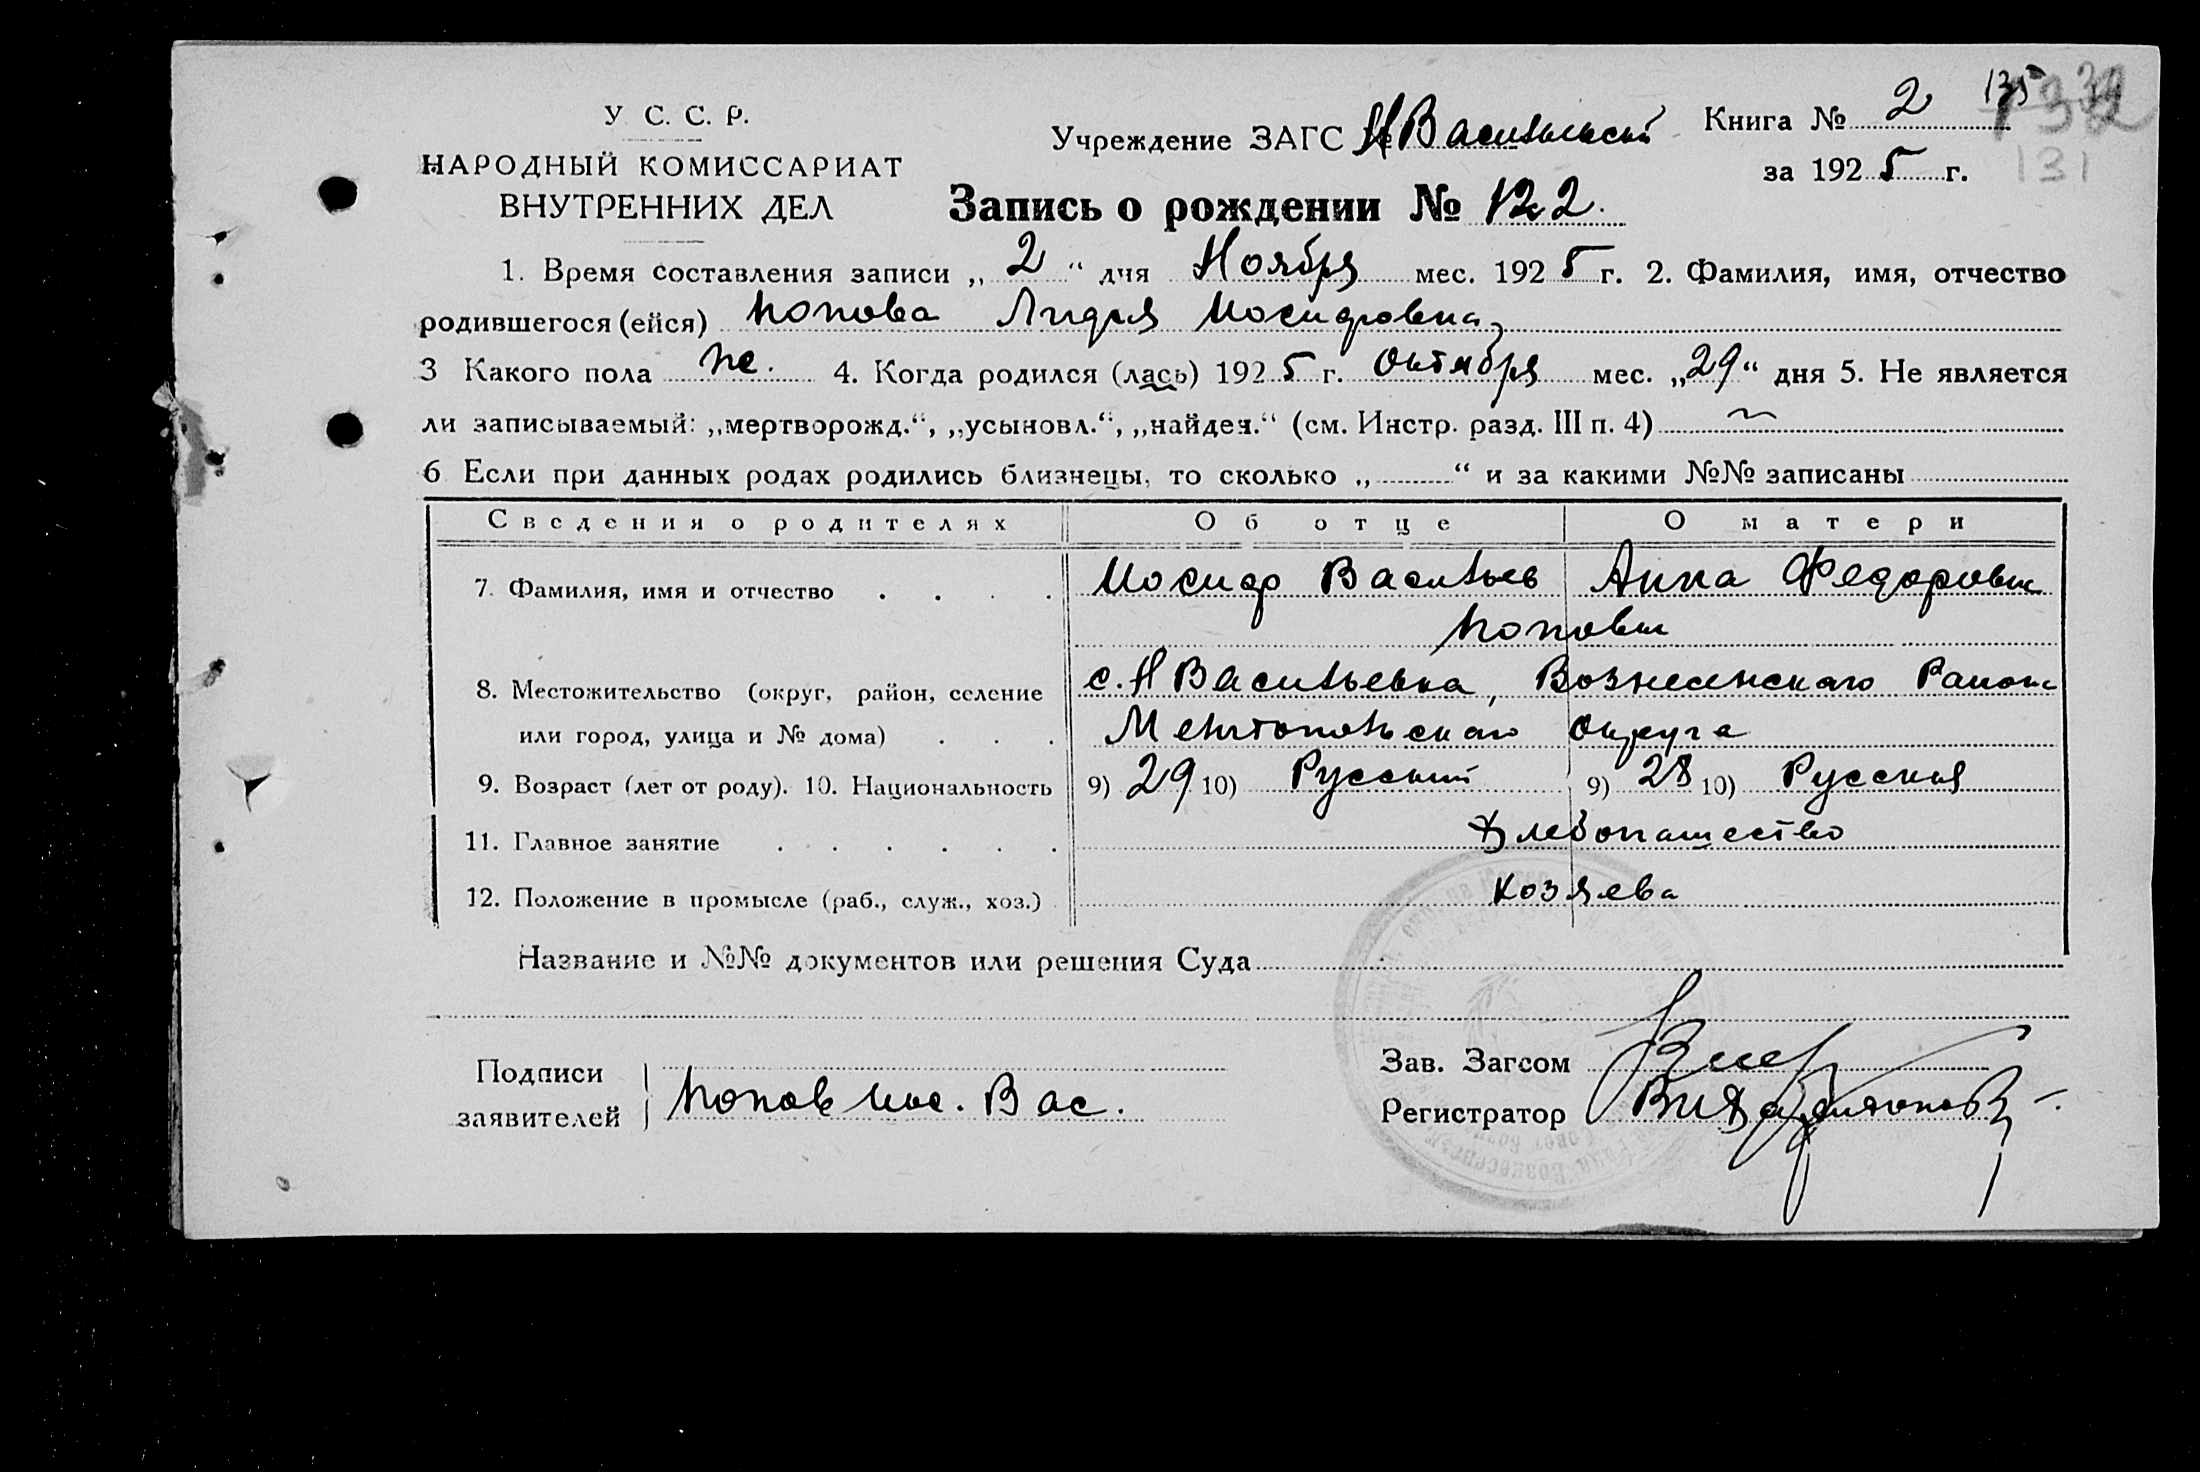 У. С. С. Р.
НАРОДНЫЙ КОМИССАРИАТ
ВНУТРЕННИХ ДЕЛ
Учреждение ЗАГС Н Васильевский
Книга № 2 135
за 1925 г. 131
Запись о рождении № 122.
1. Время составления записи „ 2 “ дня Ноября мес. 1925 г. 2. Фамилия, имя, отчество
родившегося (ейся) Попова Лидия Иосифовна
3 Какого пола же. 4. Когда родился (лась) 1925 г. Октября мес. „29“ дня 5. Не является
ли записываемый: „мертворожд.“, „усыновл.“, „найден.“ (см. Инстр. разд. III п. 4) ~
6 Если при данных родах родились близнецы, то сколько „ “ и за какими №№ записаны
Сведения о родителях Об отце О матери
7. Фамилия, имя и отчество . . . . Иосиф Васильев Анна Федоровн
Поповы
8. Местожительство (округ, район, селение с. Н Васильевка, Вознесенскаго Района
или город, улица и № дома) . . . Мелитопольскаго Округа
9. Возраст (лет от роду). 10. Национальность 9) 29 10) Русский 9) 28 10) Русская
11. Главное занятие . . . . . . Хлебопашество
12. Положение в промысле (раб., служ., хоз.) хозяева
Название и №№ документов или решения Суда
Подписи
заявителей Попов Иос. Вас.
Зав. Загсом
Регистратор